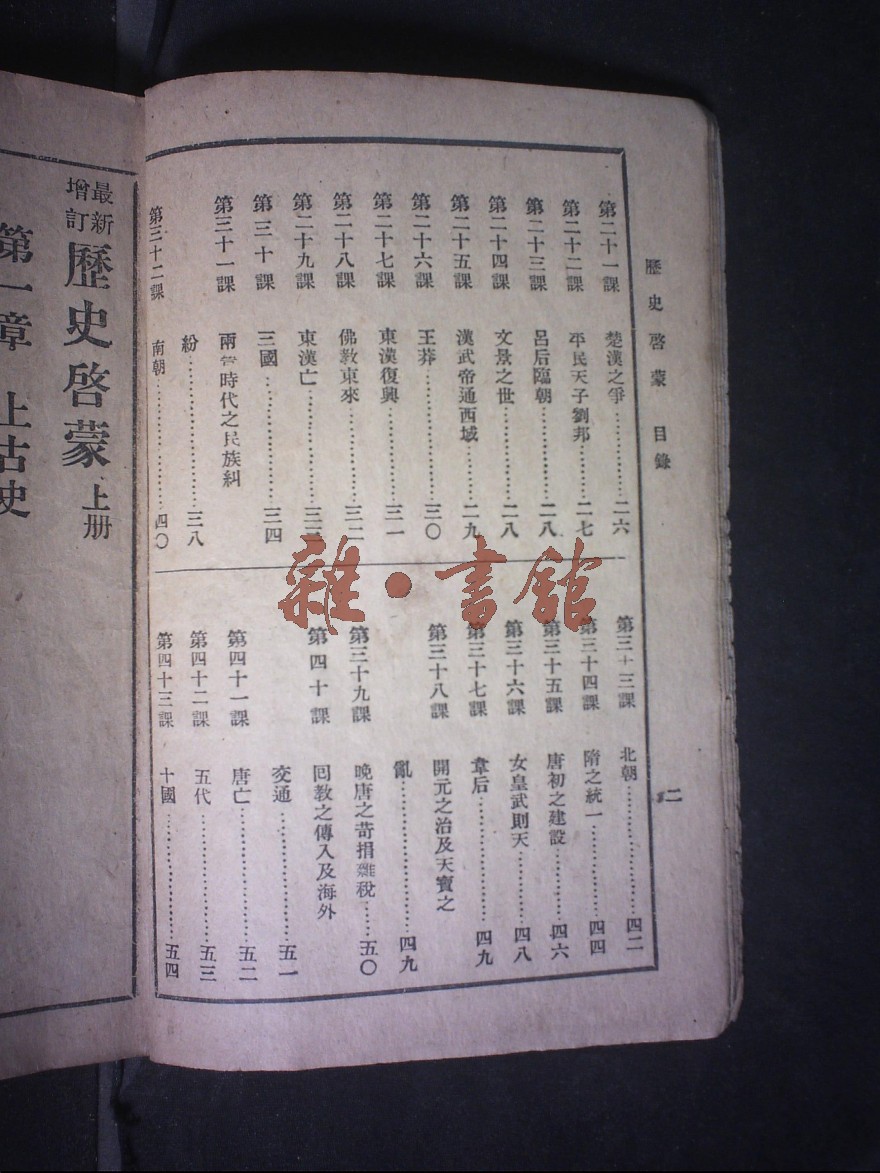 歷史啓蒙 目錄
二
第二十一課 楚漢之爭…………二六
第二十二課 平民天子劉邦………二七
第二十三課 呂后臨朝…………二八
第二十四課 文景之世…………二八
第二十五課 漢武帝通西域………二九
第二十六課 王莽…………三〇
第二十七課 東漢復興…………三一
第二十八課 佛教東來…………三二
第二十九課 東漢亡…………三三
第三十課 三國…………三四
第三十一課 兩晉時代之民族糾
紛…………三八
第三十二課 南朝…………四〇
第三十三課 北朝…………四二
第三十四課 隋之統一…………四四
第三十五課 唐初之建設…………四六
第三十六課 女皇武則天…………四八
第三十七課 韋后…………四九
第三十八課 開元之治及天寶之
亂…………四九
第三十九課 晚唐之苛捐雜稅……五〇
第四十課 回教之傳入及海外
交通…………五一
第四十一課 唐亡…………五二
第四十二課 五代…………五三
第四十三課 十國…………五四
最新增訂 歷史啓蒙 上册
第一章 上古史
雜·書館